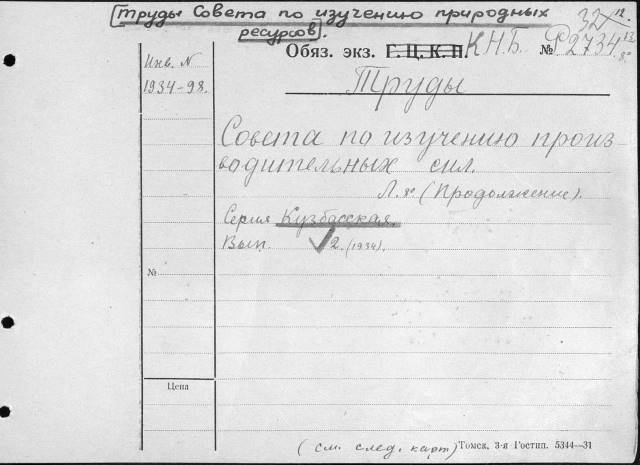 [Труды Совета по изучению природных
ресурсов].
Обяз. экз. Г. Ц. К. П. К.Н.Б. № Р2734
Инв. N
1934-98.
Труды
Совета по изучению произ-
водительных сил.
(Продолжение).
Серия Кузбасская.
Вып. 2. (1934).
№
Цена
(см. след. карт)
Томск, 3-я Гостип. 5344—31